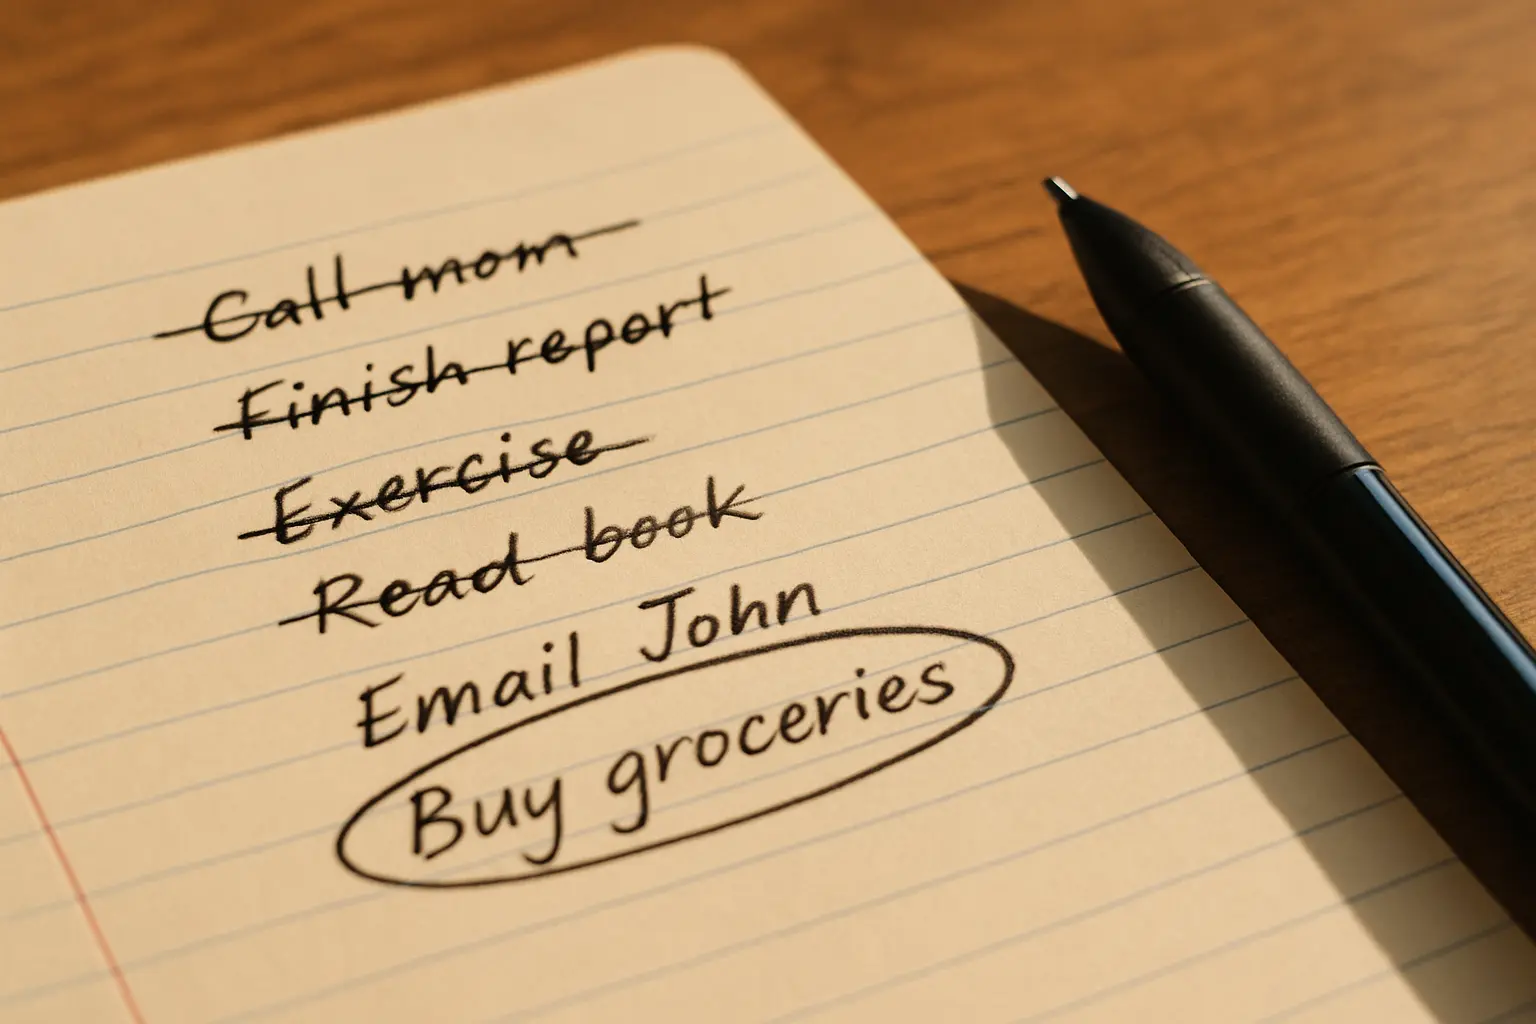 Call mom
Finish report
Exercise
Read book
Email John
Buy groceries